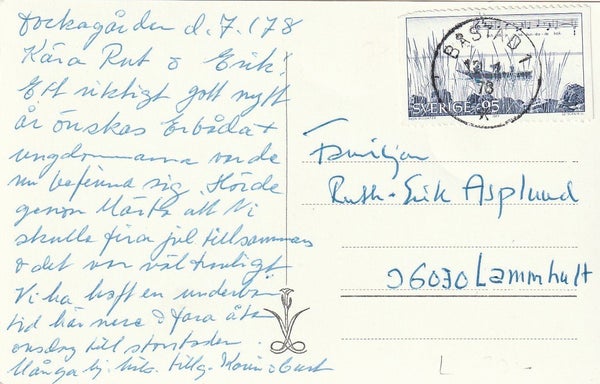 Dockagården d. 7.1 78
Kära Rut o Erik!
Ett riktigt gott nytt
år önskas Er båda +
ungdomarna var de
nu befinna sig. Hörde
genom Märta att Ni
skulle fira jul tillsammans
o det var väl trevligt
Vi ha haft en underbar
tid här nere o fara åter
onsdag till storstaden.
Många hj. häls. tillg. Karin o Curt
BÅSTAD 1
78
SVERIGE 95
Familjen
Ruth - Erik Asplund
36030 Lammhult